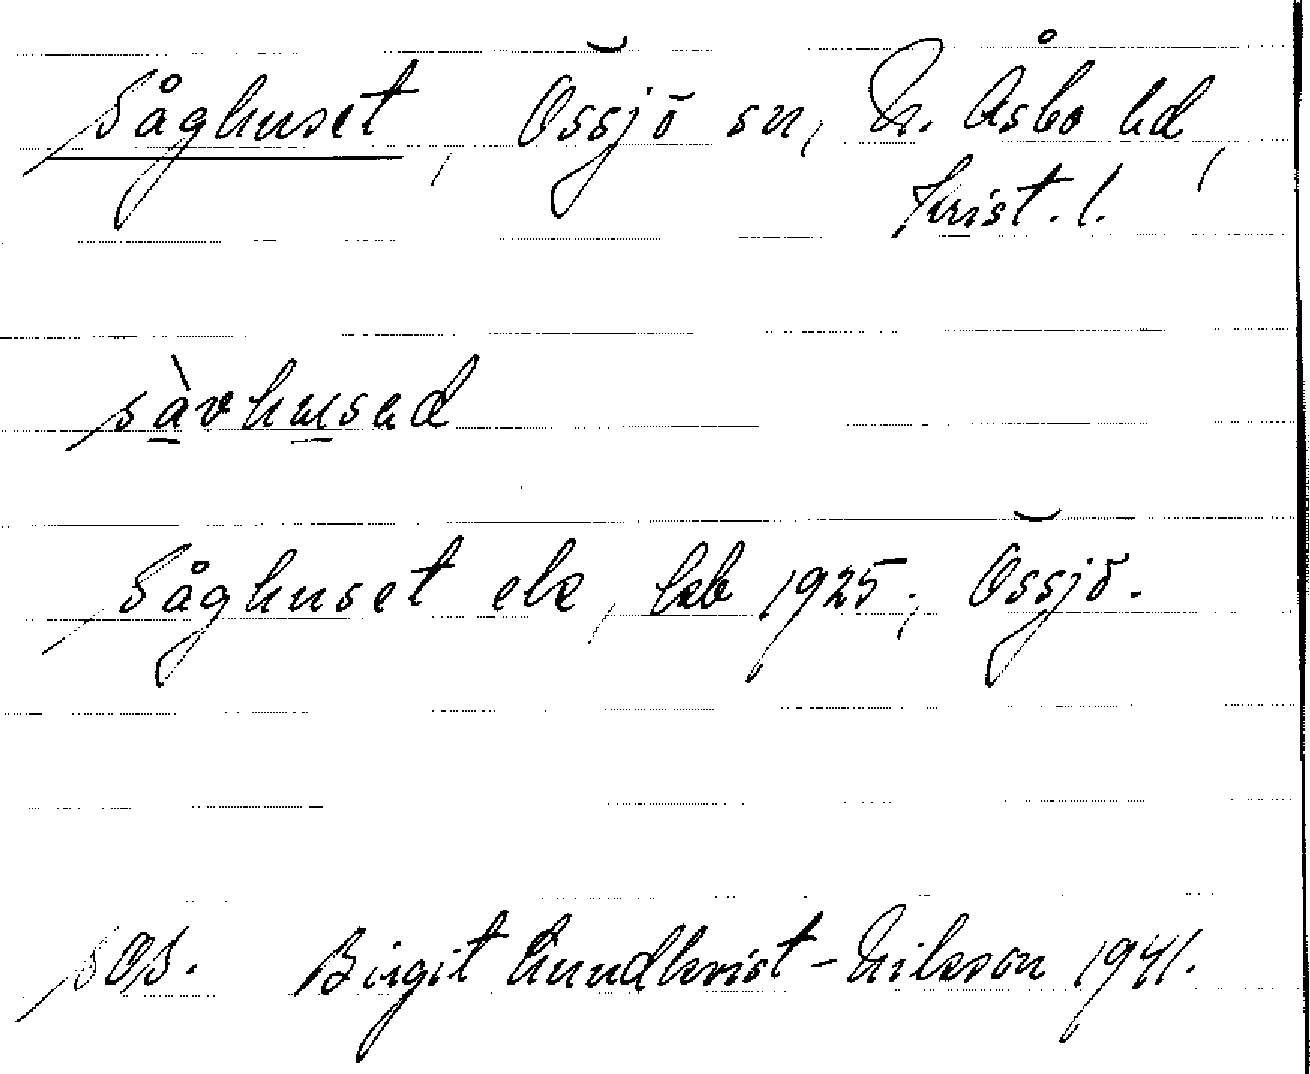 Såghuset, Össjö sn, N. Åsbo hd,
Krist. l.
sàvhusəd
Såghuset ek, kb 1925; Össjö.
SOS. Birgit Lundkvist-Nilsson 1941.